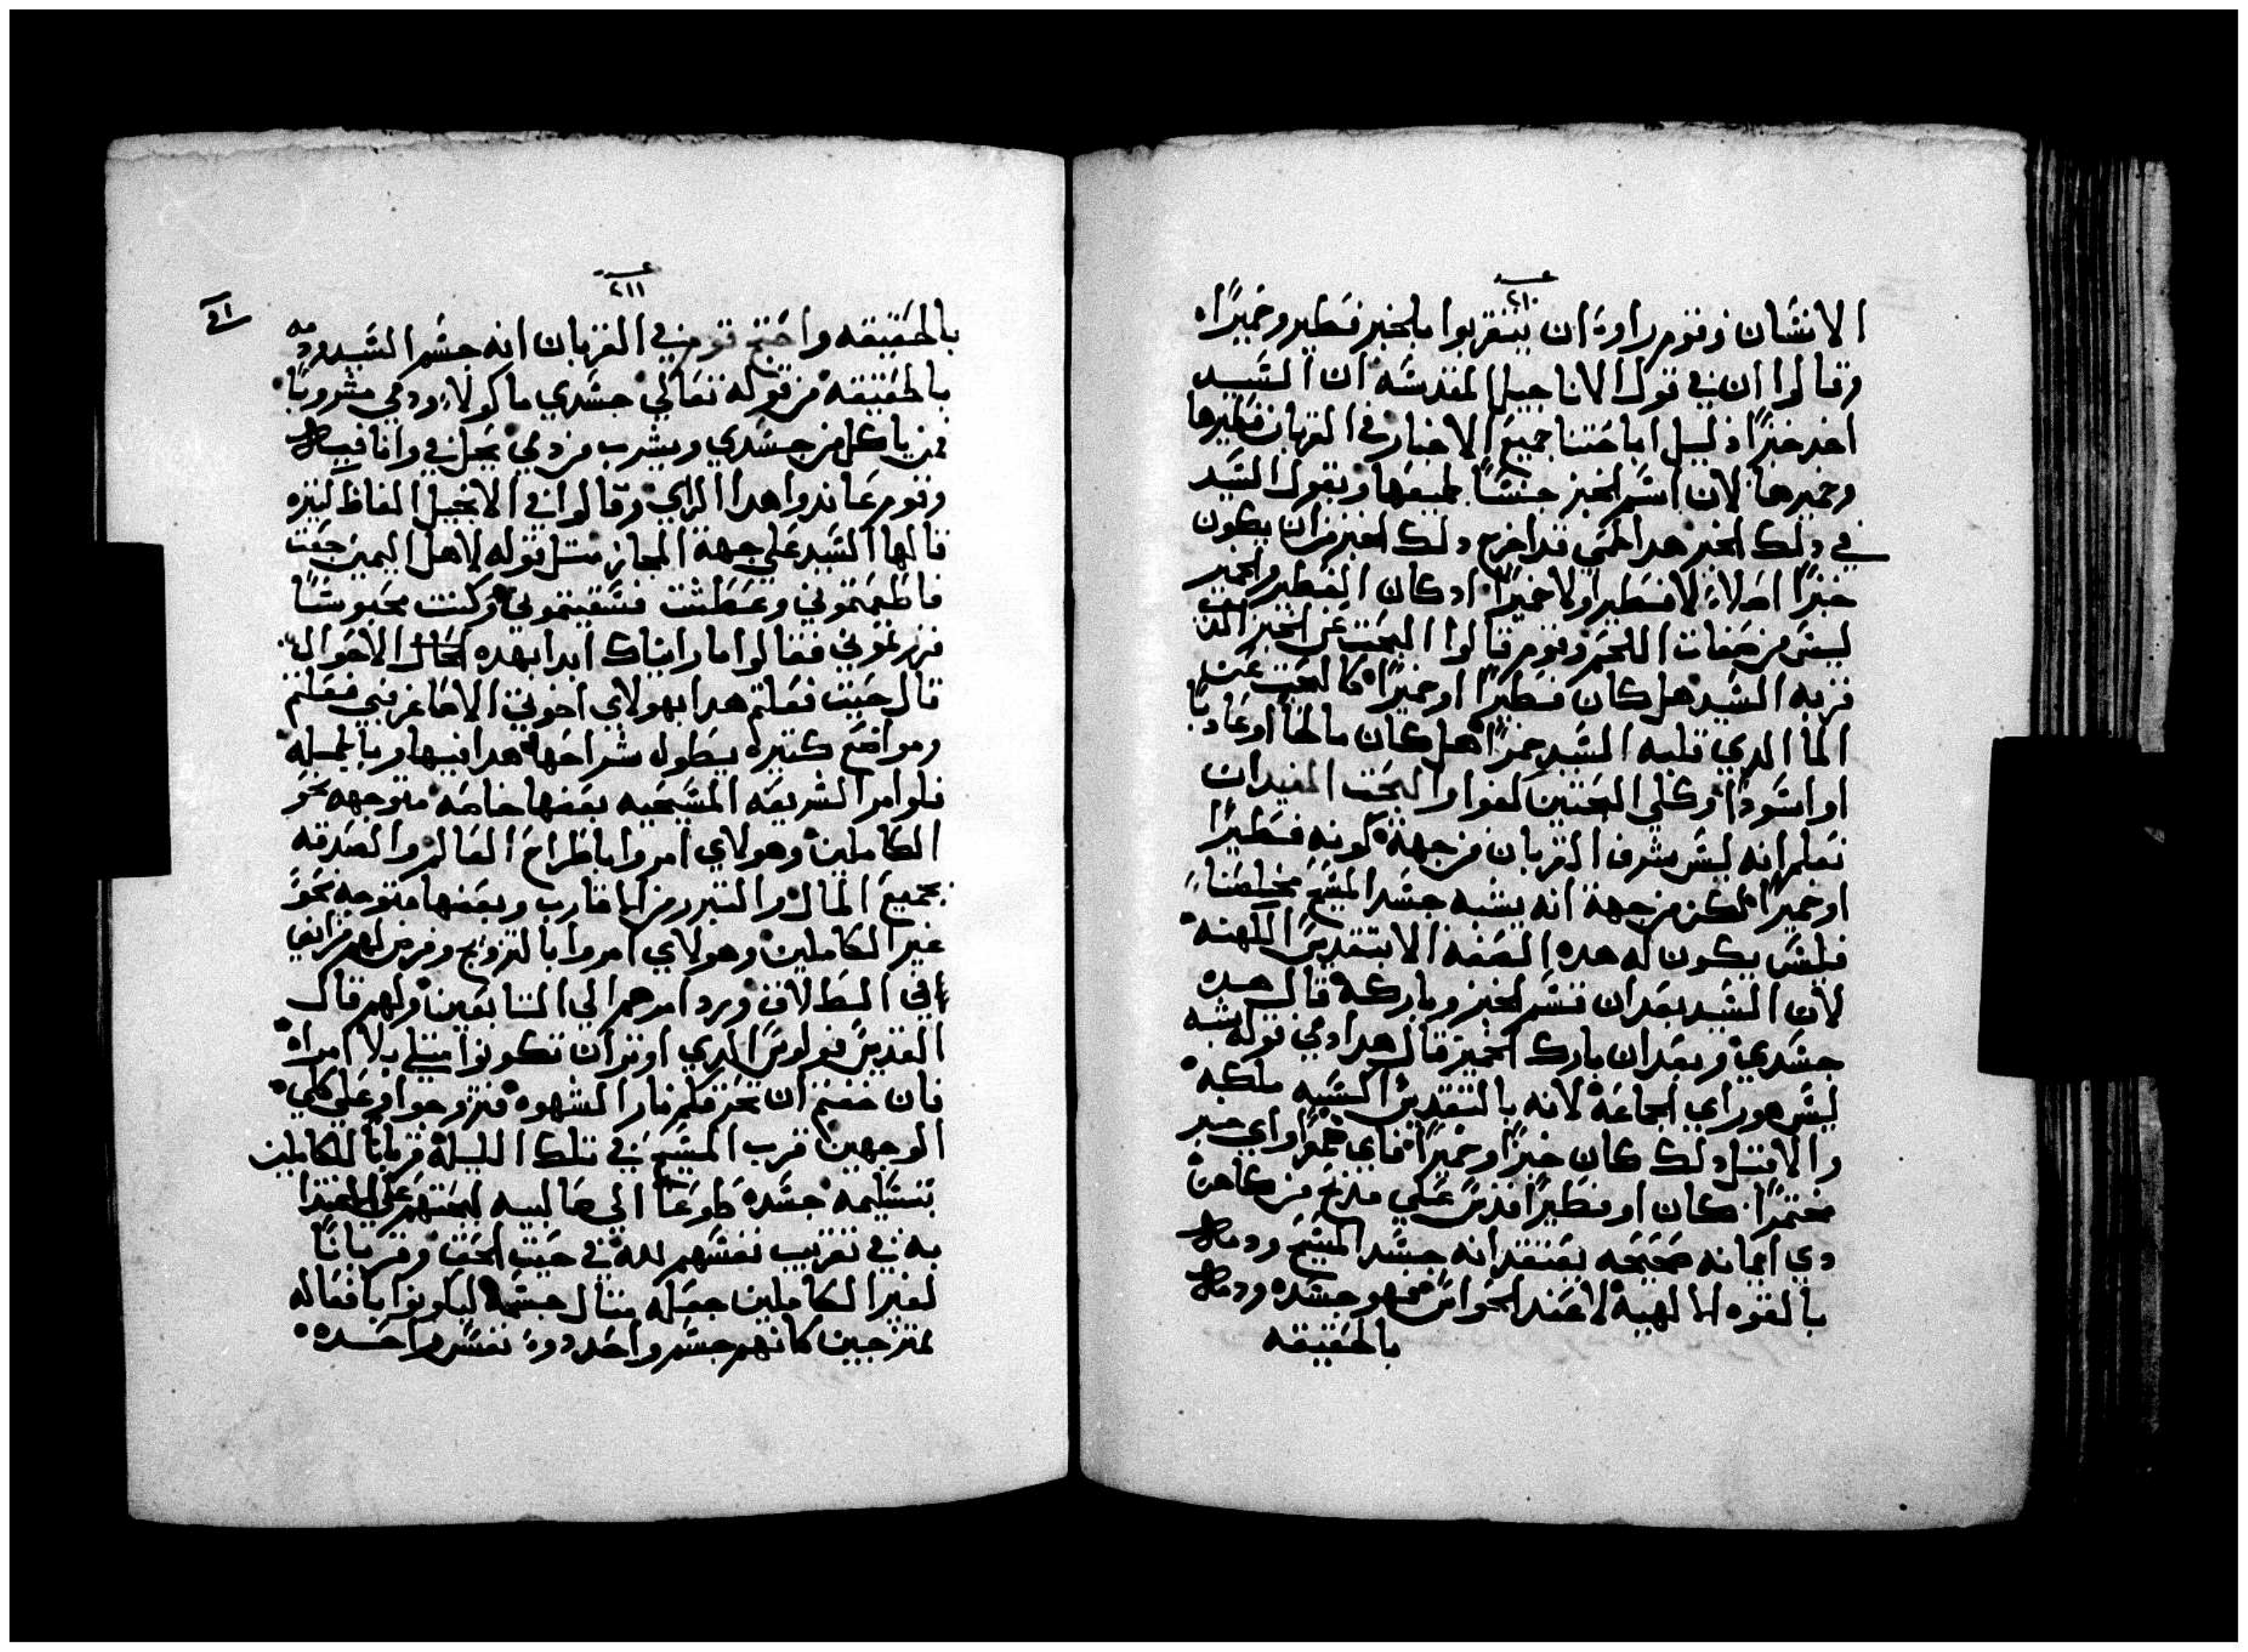 عدد
٢١٠
الانسان وقوم راوا ان يتقربوا بالخبز فطير وخميرًا.
وقالوا ان في قول الاناجيل المقدسه ان السيد
اخد خبزًا دليل اباحتنا جميع الاخباز في القربان فطيرها
وخميرها لان اسم الخبز جنسًا لجميعها وبقول السيد
في دلك الخبز هدا لحمي قد اخرج دلك الخبز من ان يكون
خبزًا اصلا لا فطيرا ولا خميرًا اد كان الفطير والخمير
ليس من صفات اللحم وقوم قالوا البحت عن الخبز الذي
قربه السيد هل كان فطيرًا او خميرًا كالبحت عن
الما الدي قلبه السيد خمرًا هل كان مالحًا او عادبًا
او اسودًا وكلي البحتين لغوا والبحت المفيد ان
نعلم انه ليس شرف القربان من جهة كونه فطيرًا
او خميرًا لكن من جهة انه يشبه جسد المسيح مخلصنا
فليس يكون له هده الصفه الا بتقديس الكهنه
لان السيد بعد ان قسم الخبز وباركه قال هده
جسدي وبعد ان بارك الخمر قال هدا دمي قوله يشبه
ليس هو راي الجماعة لانه بالتقديس الشبه ملكه
والا قبل دلك كان خبزًا وخميرًا فاي خبزًا واي خبر
مختمرًا كان او فطيرًا قدس علي مدبح من كاهن
دي امانه صحيحه يعتقد انه جسد المسيح ودمه
بالقوه الالهية لا عند الحواس فهو جسده ودمه
بالحقيقه
عدد
٢١١
بالحقيقه واحتج قوم في القربان انه جسم السيد ودمه
بالحقيقه من قوله تعالي جسدي ماكولا ودمي مشروبًا
فمن ياكل من جسدي ويشرب من دمي يحل في وانا فيه
وقوم عاندوا هدا الراي وقالوا في الانجيل الفاظ كتيره
قالها السيد علي جهة المجاز متل قوله لاهل اليمين جعت
فاطعمتموني وعطشت فسقيتموني وكنت محبوسًا
فزرتموني فقالوا ما رايناك ابدا بهده الاحوال
قال حيت فعلتم هدا بهولاي اخوتي الاصاغر فبي فعلتم
ومواضع كتيره يطول شراحها هدا فيها وبالجمله
فاوامر الشريعه المسيحيه بعضها خاصه متوجهه نحو
الكاملين وهولاي امروا باطراح العالم والصدقه
بجميع المال والتبرر من الاقارب وبعضها متوجه نحو
غير الكاملين وهولاي امروا بالتزويج وفرض لهم فرايض
في الطلاق ورد امرهم الي السابقين ولهم قال
القديس فولوس الدي اوتر ان تكونوا متلي بلا امراه
فان خفتم ان تحرقكم نار الشهوه فتزوجوا وعلي كلي
الوجهين قرب المسيح في تلك الليلة قربانًا للكاملين
بتسليمه جسده طوعًا الي صالبيه ليحتهم علي الاقتدا
به في تقريب نفسهم لله في حيت الحق وقربانًا
لغير الكاملين جعله متال جسمه ليكونوا بافعاله
ممتزجين كانهم جسم واحد دوو نفس واحده.